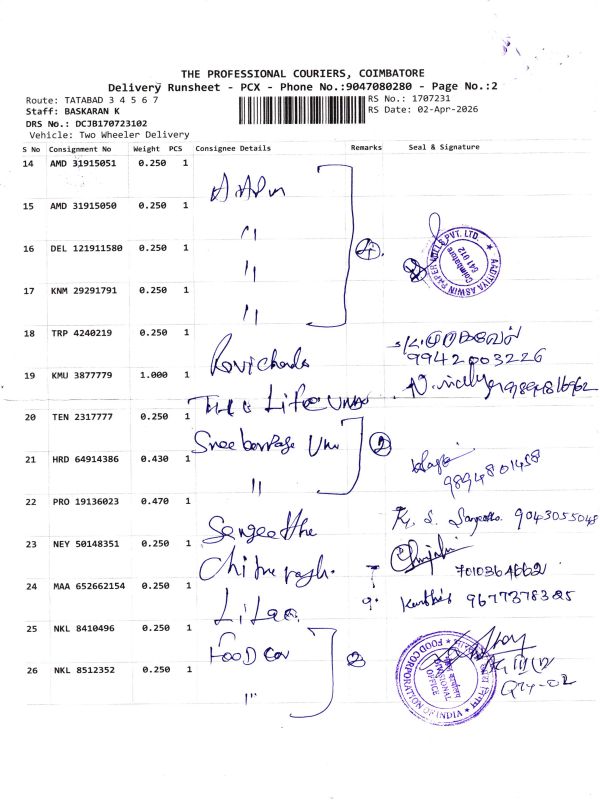 THE PROFESSIONAL COURIERS, COIMBATORE
Delivery Runsheet - PCX - Phone No.:9047080280 - Page No.:2
Route: TATABAD 3 4 5 6 7
RS No.: 1707231
Staff: BASKARAN K
RS Date: 02-Apr-2026
DRS No.: DCJB170723102
Vehicle: Two Wheeler Delivery
S No Consignment No Weight PCS Consignee Details Remarks Seal & Signature
14 AMD 31915051 0.250 1
15 AMD 31915050 0.250 1
16 DEL 121911580 0.250 1
4
AADITIYA ASWIN PAPER MILLS PVT. LTD.
Coimbatore
641 012
17 KNM 29291791 0.250 1
18 TRP 4240219 0.250 1
9942003226
19 KMU 3877779 1.000 1
20 TEN 2317777 0.250 1
2
21 HRD 64914386 0.430 1
9894801458
22 PRO 19136023 0.470 1
9043055048
23 NEY 50148351 0.250 1
7010364662
24 MAA 652662154 0.250 1
Karthik 9677378325
25 NKL 8410496 0.250 1
Food Cor
2
26 NKL 8512352 0.250 1
FOOD CORPORATION OF INDIA
DIVISIONAL
OFFICE
Qty-02